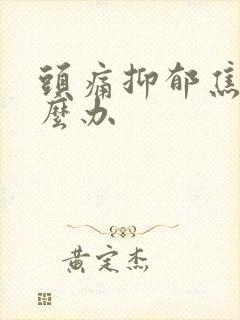 頭痛抑郁焦
麼办
黄定杰